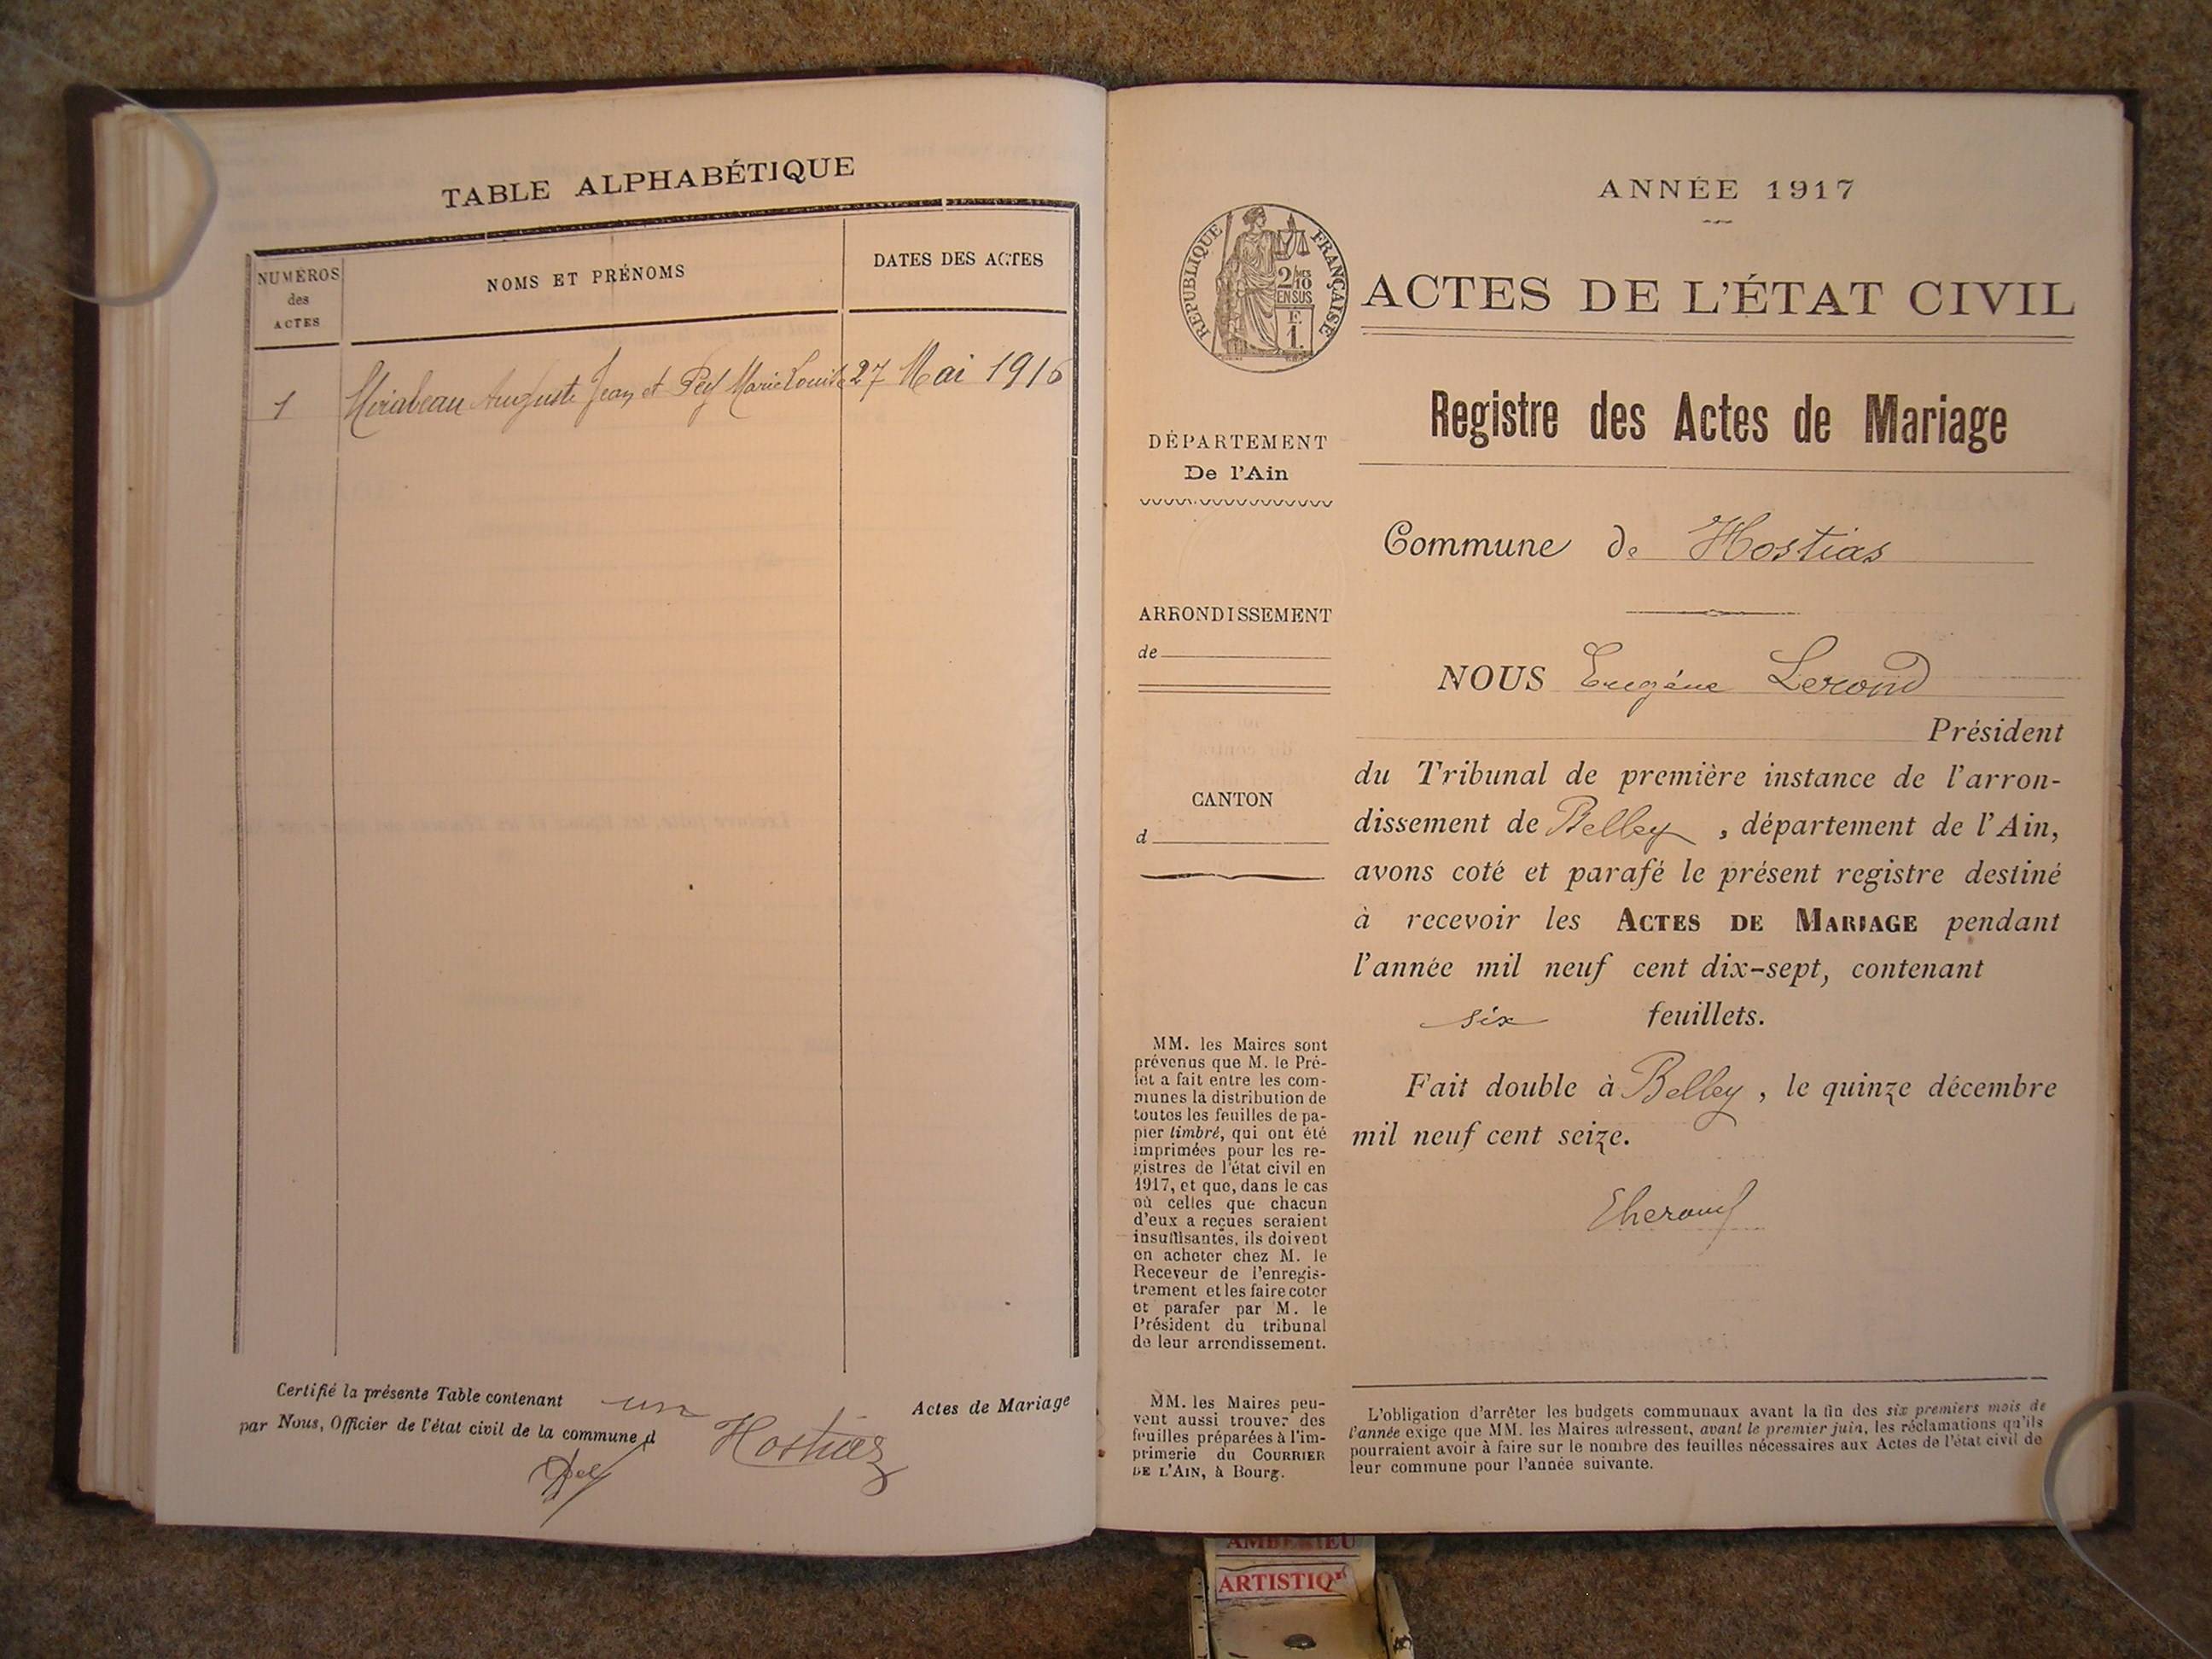 TABLE ALPHABÉTIQUE
NUMÉROS
des
ACTES
NOMS ET PRÉNOMS
DATES DES ACTES
1 Mirabeau Auguste Jean et Pey Marie Louise 27 Mai 1916
Certifié la présente Table contenant un Actes de Mariage
par Nous, Officier de l'état civil de la commune d Hostiaz
ANNÉE 1917
RÉPUBLIQUE FRANÇAISE
2/10
EN SUS
E
1.
ACTES DE L'ÉTAT CIVIL
Registre des Actes de Mariage
DÉPARTEMENT
De l'Ain
Commune de Hostias
ARRONDISSEMENT
de
NOUS Eugène Lerond
Président
du Tribunal de première instance de l'arron-
dissement de Belley, département de l'Ain,
avons coté et parafé le présent registre destiné
à recevoir les ACTES DE MARIAGE pendant
l'année mil neuf cent dix-sept, contenant
six feuillets.
Fait double à Belley, le quinze décembre
mil neuf cent seize.
CANTON
d
MM. les Maires sont
prévenus que M. le Pré-
fet a fait entre les com-
munes la distribution de
toutes les feuilles de pa-
pier timbré, qui ont été
imprimées pour les re-
gistres de l'état civil en
1917, et que, dans le cas
où celles que chacun
d'eux a reçues seraient
insuffisantes, ils doivent
en acheter chez M. le
Receveur de l'enregis-
trement et les faire coter
et parafer par M. le
Président du tribunal
de leur arrondissement.
MM. les Maires peu-
vent aussi trouver des
feuilles préparées à l'im-
primerie du COURRIER
DE L'AIN, à Bourg.
L'obligation d'arrêter les budgets communaux avant la fin des six premiers mois de
l'année exige que MM. les Maires adressent, avant le premier juin, les réclamations qu'ils
pourraient avoir à faire sur le nombre des feuilles nécessaires aux Actes de l'état civil de
leur commune pour l'année suivante.
AMBERIEU
ARTISTIQ